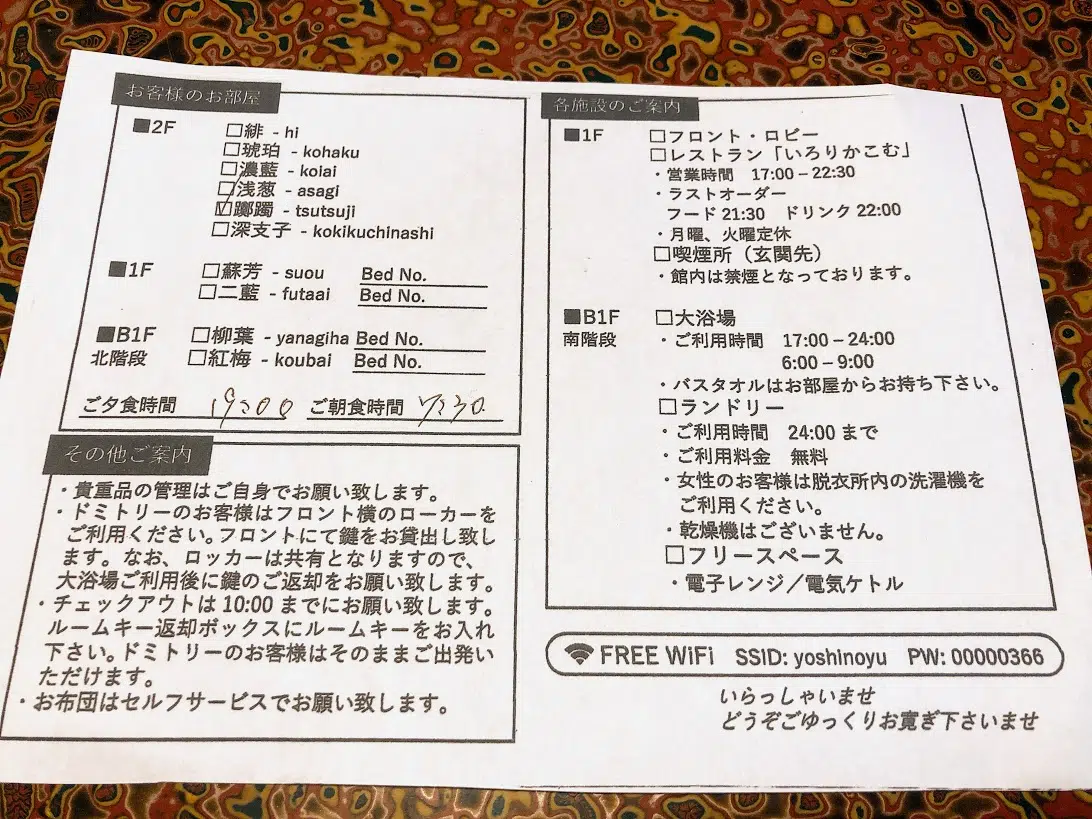 お客様のお部屋
■2F
□緋 - hi
□琥珀 - kohaku
□濃藍 - koiai
□浅葱 - asagi
☑躑躅 - tsutsuji
□深支子 - kokikuchinashi
■1F
□蘇芳 - suou Bed No.
□二藍 - futaai Bed No.
■B1F
北階段
□柳葉 - yanagiha Bed No.
□紅梅 - koubai Bed No.
ご夕食時間 19:00 ご朝食時間 7:30
その他ご案内
・貴重品の管理はご自身でお願い致します。
・ドミトリーのお客様はフロント横のローカーを
ご利用ください。フロントにて鍵をお貸出し致し
ます。なお、ロッカーは共有となりますので、
大浴場ご利用後に鍵のご返却をお願い致します。
・チェックアウトは 10:00 までにお願い致します。
ルームキー返却ボックスにルームキーをお入れ
下さい。ドミトリーのお客様はそのままご出発い
ただけます。
・お布団はセルフサービスでお願い致します。
各施設のご案内
■1F
□フロント・ロビー
□レストラン「いろりかこむ」
・営業時間 17:00 – 22:30
・ラストオーダー
フード 21:30 ドリンク 22:00
・月曜、火曜定休
□喫煙所（玄関先）
・館内は禁煙となっております。
■B1F
南階段
□大浴場
・ご利用時間 17:00 – 24:00
6:00 – 9:00
・バスタオルはお部屋からお持ち下さい。
□ランドリー
・ご利用時間 24:00 まで
・ご利用料金 無料
・女性のお客様は脱衣所内の洗濯機を
ご利用ください。
・乾燥機はございません。
□フリースペース
・電子レンジ／電気ケトル
FREE WiFi SSID: yoshinoyu PW: 00000366
いらっしゃいませ
どうぞごゆっくりお寛ぎ下さいませ